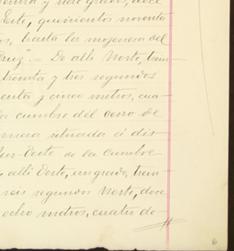 y siete grados, doce
Oeste, quinientos noventa
os, hasta la mojonera del
Cruz".- De alli Norte, trein
treinta y tres segundos
enta y cinco metros, cua
la cumbre del cerro de
situada á dis
Oeste de la cumbre
alli Oeste, un grado, trein
seis segundos Norte, doce
ocho metros, cuatro de-